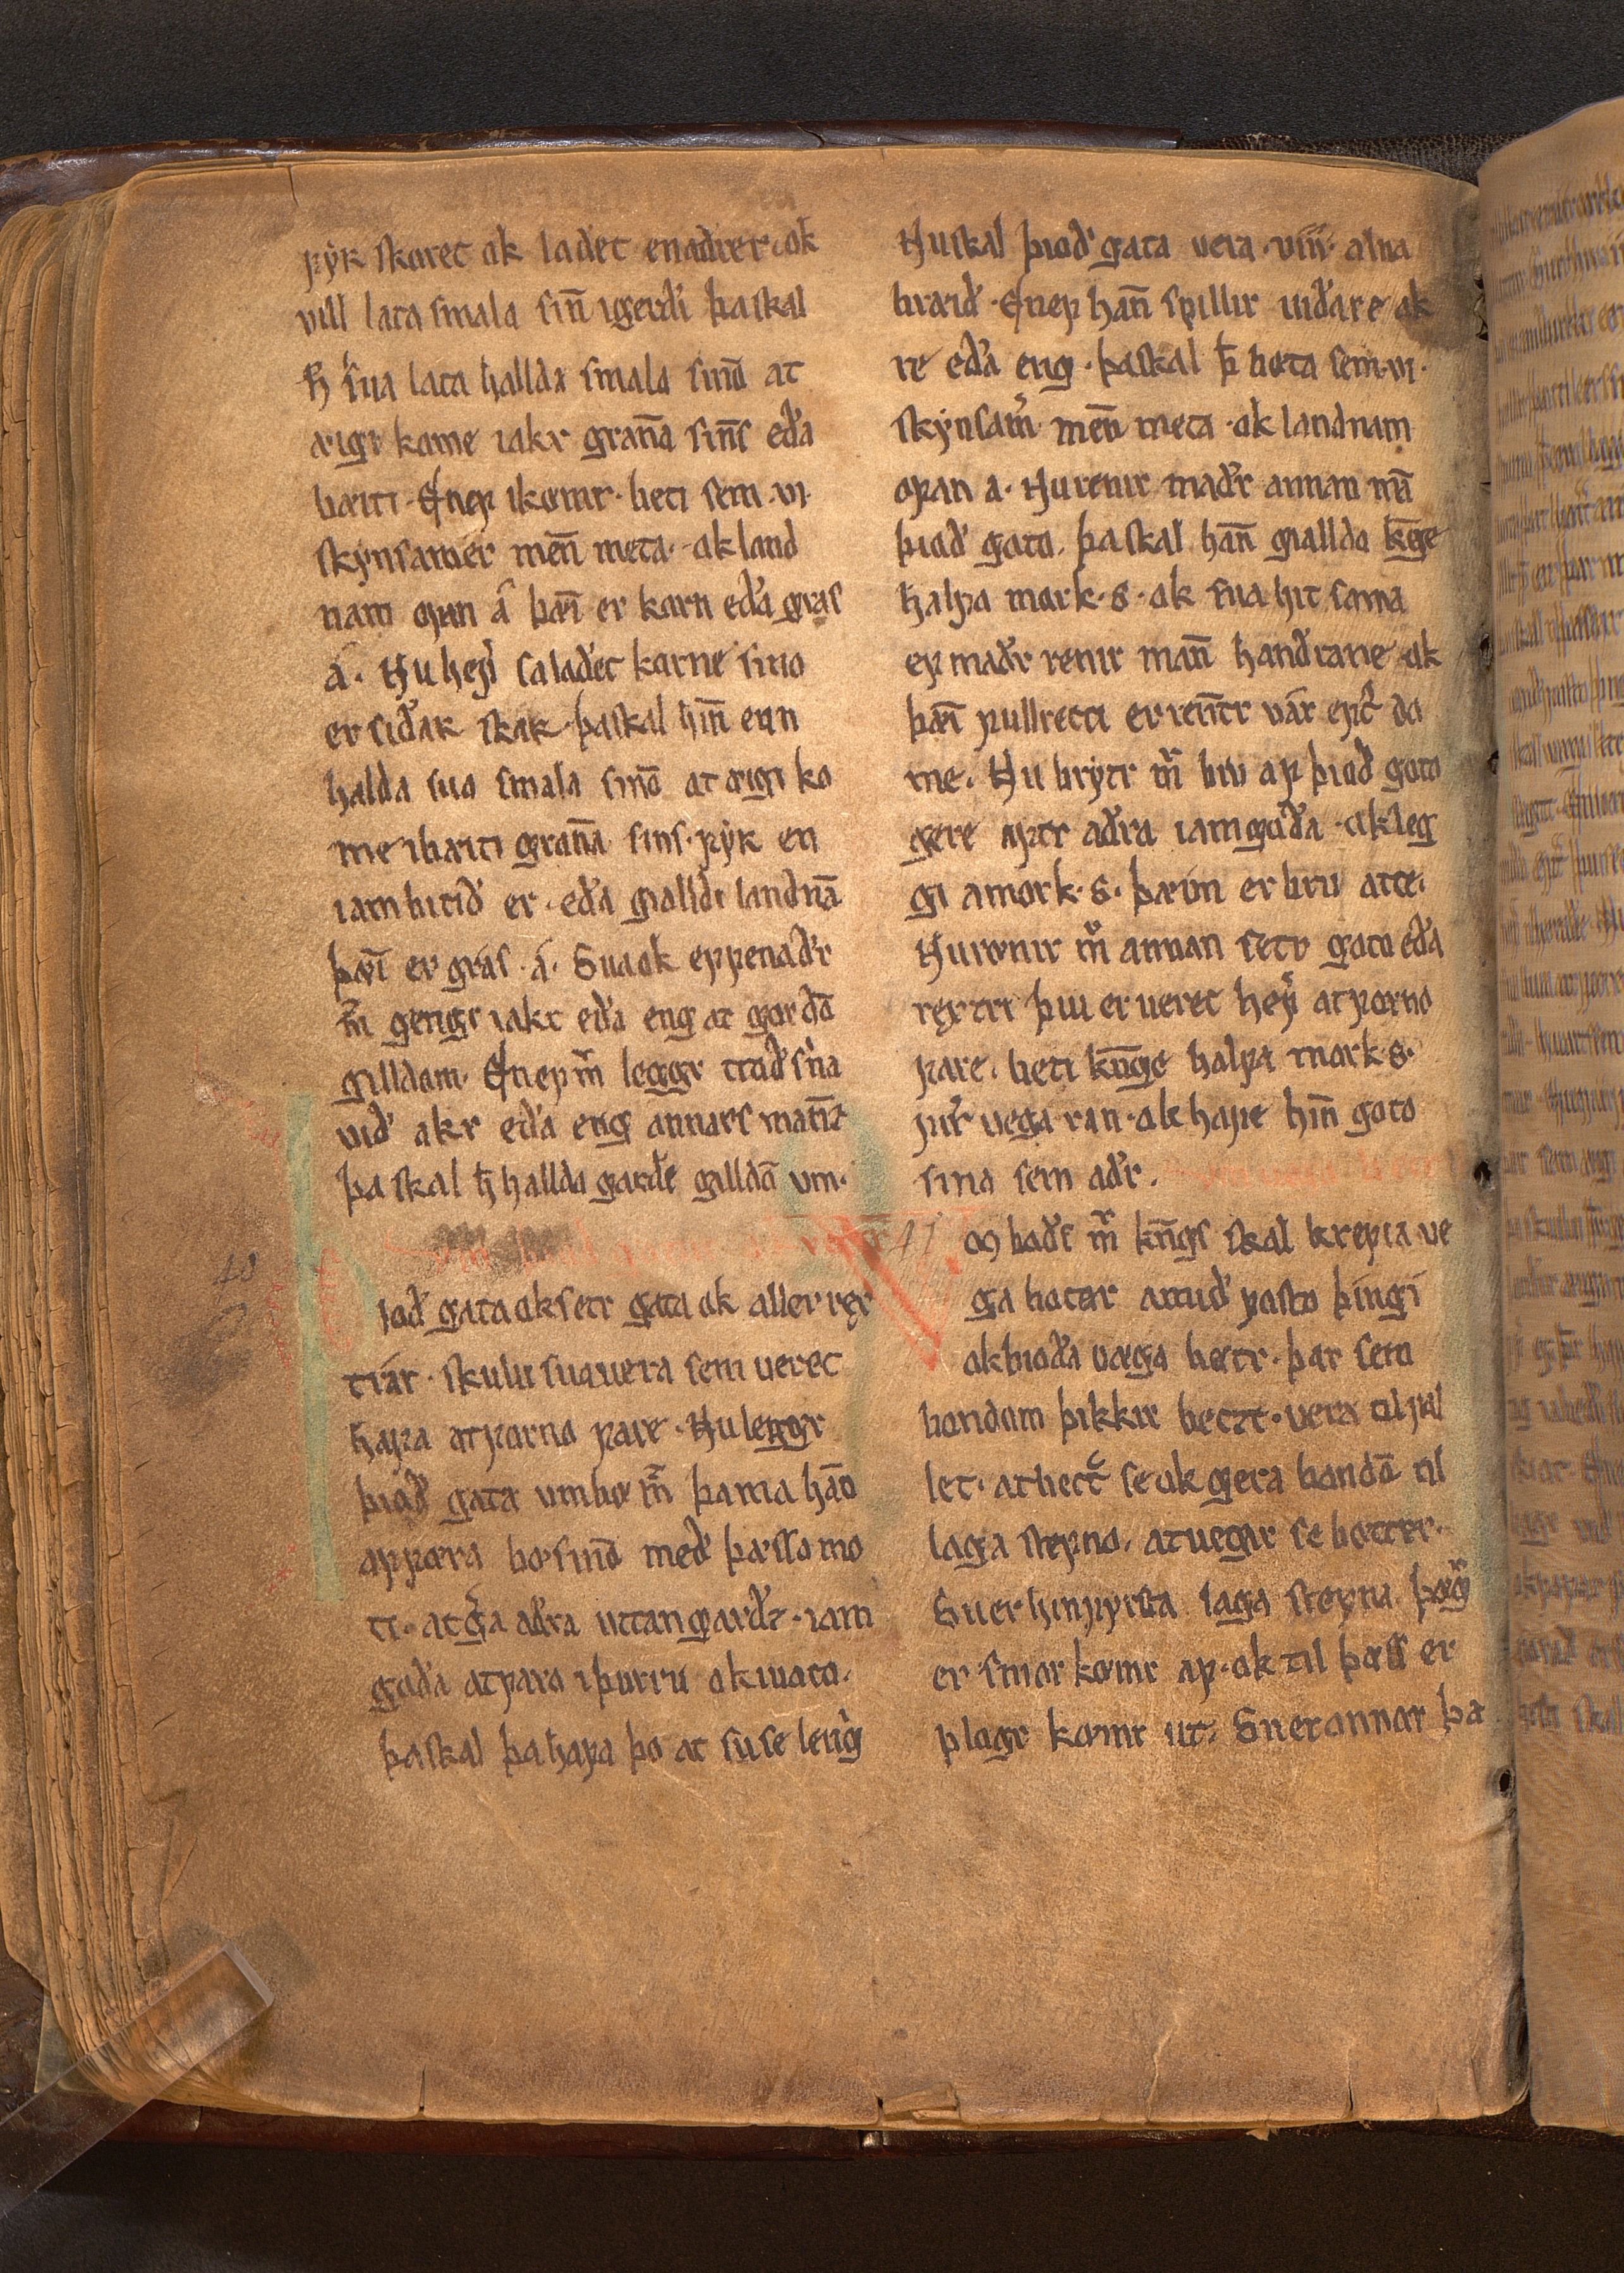 fyʀ skoret ok ladet en adrer. ok
vill lata smala sin̄ i gerdi þa skal
ħ sua lata hallda smala sinō at
æigi kome i akr gran̄a sin̄s eða
bæiti. En ef i kömr. beti sem .vi.
skynsamer men̄ meta. ok land
nam ofan á þæī er korn eða gras
á. Nu hefꝛ sa ladet korne sino
er siðaʀ skaʀ. þa skal hin̄ eun
halda suo smala sinō at æigi ko
me i bæiti gran̄a sins. fyʀ en
iambitið er. eða gialldi landnā
þæī er gras .á. Sua ok ef fenaðr
m̄ gengr i akr eða eng at gorðō
gilldom. En ef m̄ leggr trǫð sína
við akr eða eng annars man̄z
þa skal ħ hallda garðe gilldā um.
40
þioð gata ok setr gata ok aller rek
trar. skulu sua vera sem veret
hafa at forno fare. Nu leggr
þioð gata um bø m̄ þa ma hāo
af føra bø sinō með þæsso mo
ti. at gͤra aðra uttan garðz. iam
goða at fara i þurru ok uato.
þa skal þa hafa þo at su se lengͬ
Nu skal þioð gata vera .viii. alna
bræið. En ef han̄ spillir viðare ak
re eða eng. þa skal ħ bøta sem .vi.
skynsam̄ men̄ meta. ok landnam
ofan á. Nu renir maðr annan mā
þioð gato. þa skal han̄ giallda kn̄ge
halfa mork .s. ok sua hit soma
ef maðr renir man̄ handrane ok
þæī fullretti er ren̄tr var eftͥ do
me. Nu brytr m̄ bru af þioð goto
gere aftr aðra iamgoða. ok leg
gi a mork .s. þæim er bru atte.
Nu rænir m̄ annan setr goto eða
rextri þui er veret hefꝛ at forno
fare. beti kn̄ge halfa mork .s.
firͥ vega ran. ok hafe hin̄ goto
sina sem aðr.
41 Vmbaðs m̄ kn̄gs skal krefia ve
ga botar attuð fasto þingi
ok bioða væga bøtr. þar sem
bondom þikkir bezt. vera til fal
let. at hettͥ se ok gera bondō til
laga stefno. at uegar se botter.
S uer hin fyrsta laga stefna þægͬ
er snior kømr af. ok til þæss er
plogr kømr ut. Su er annor þa